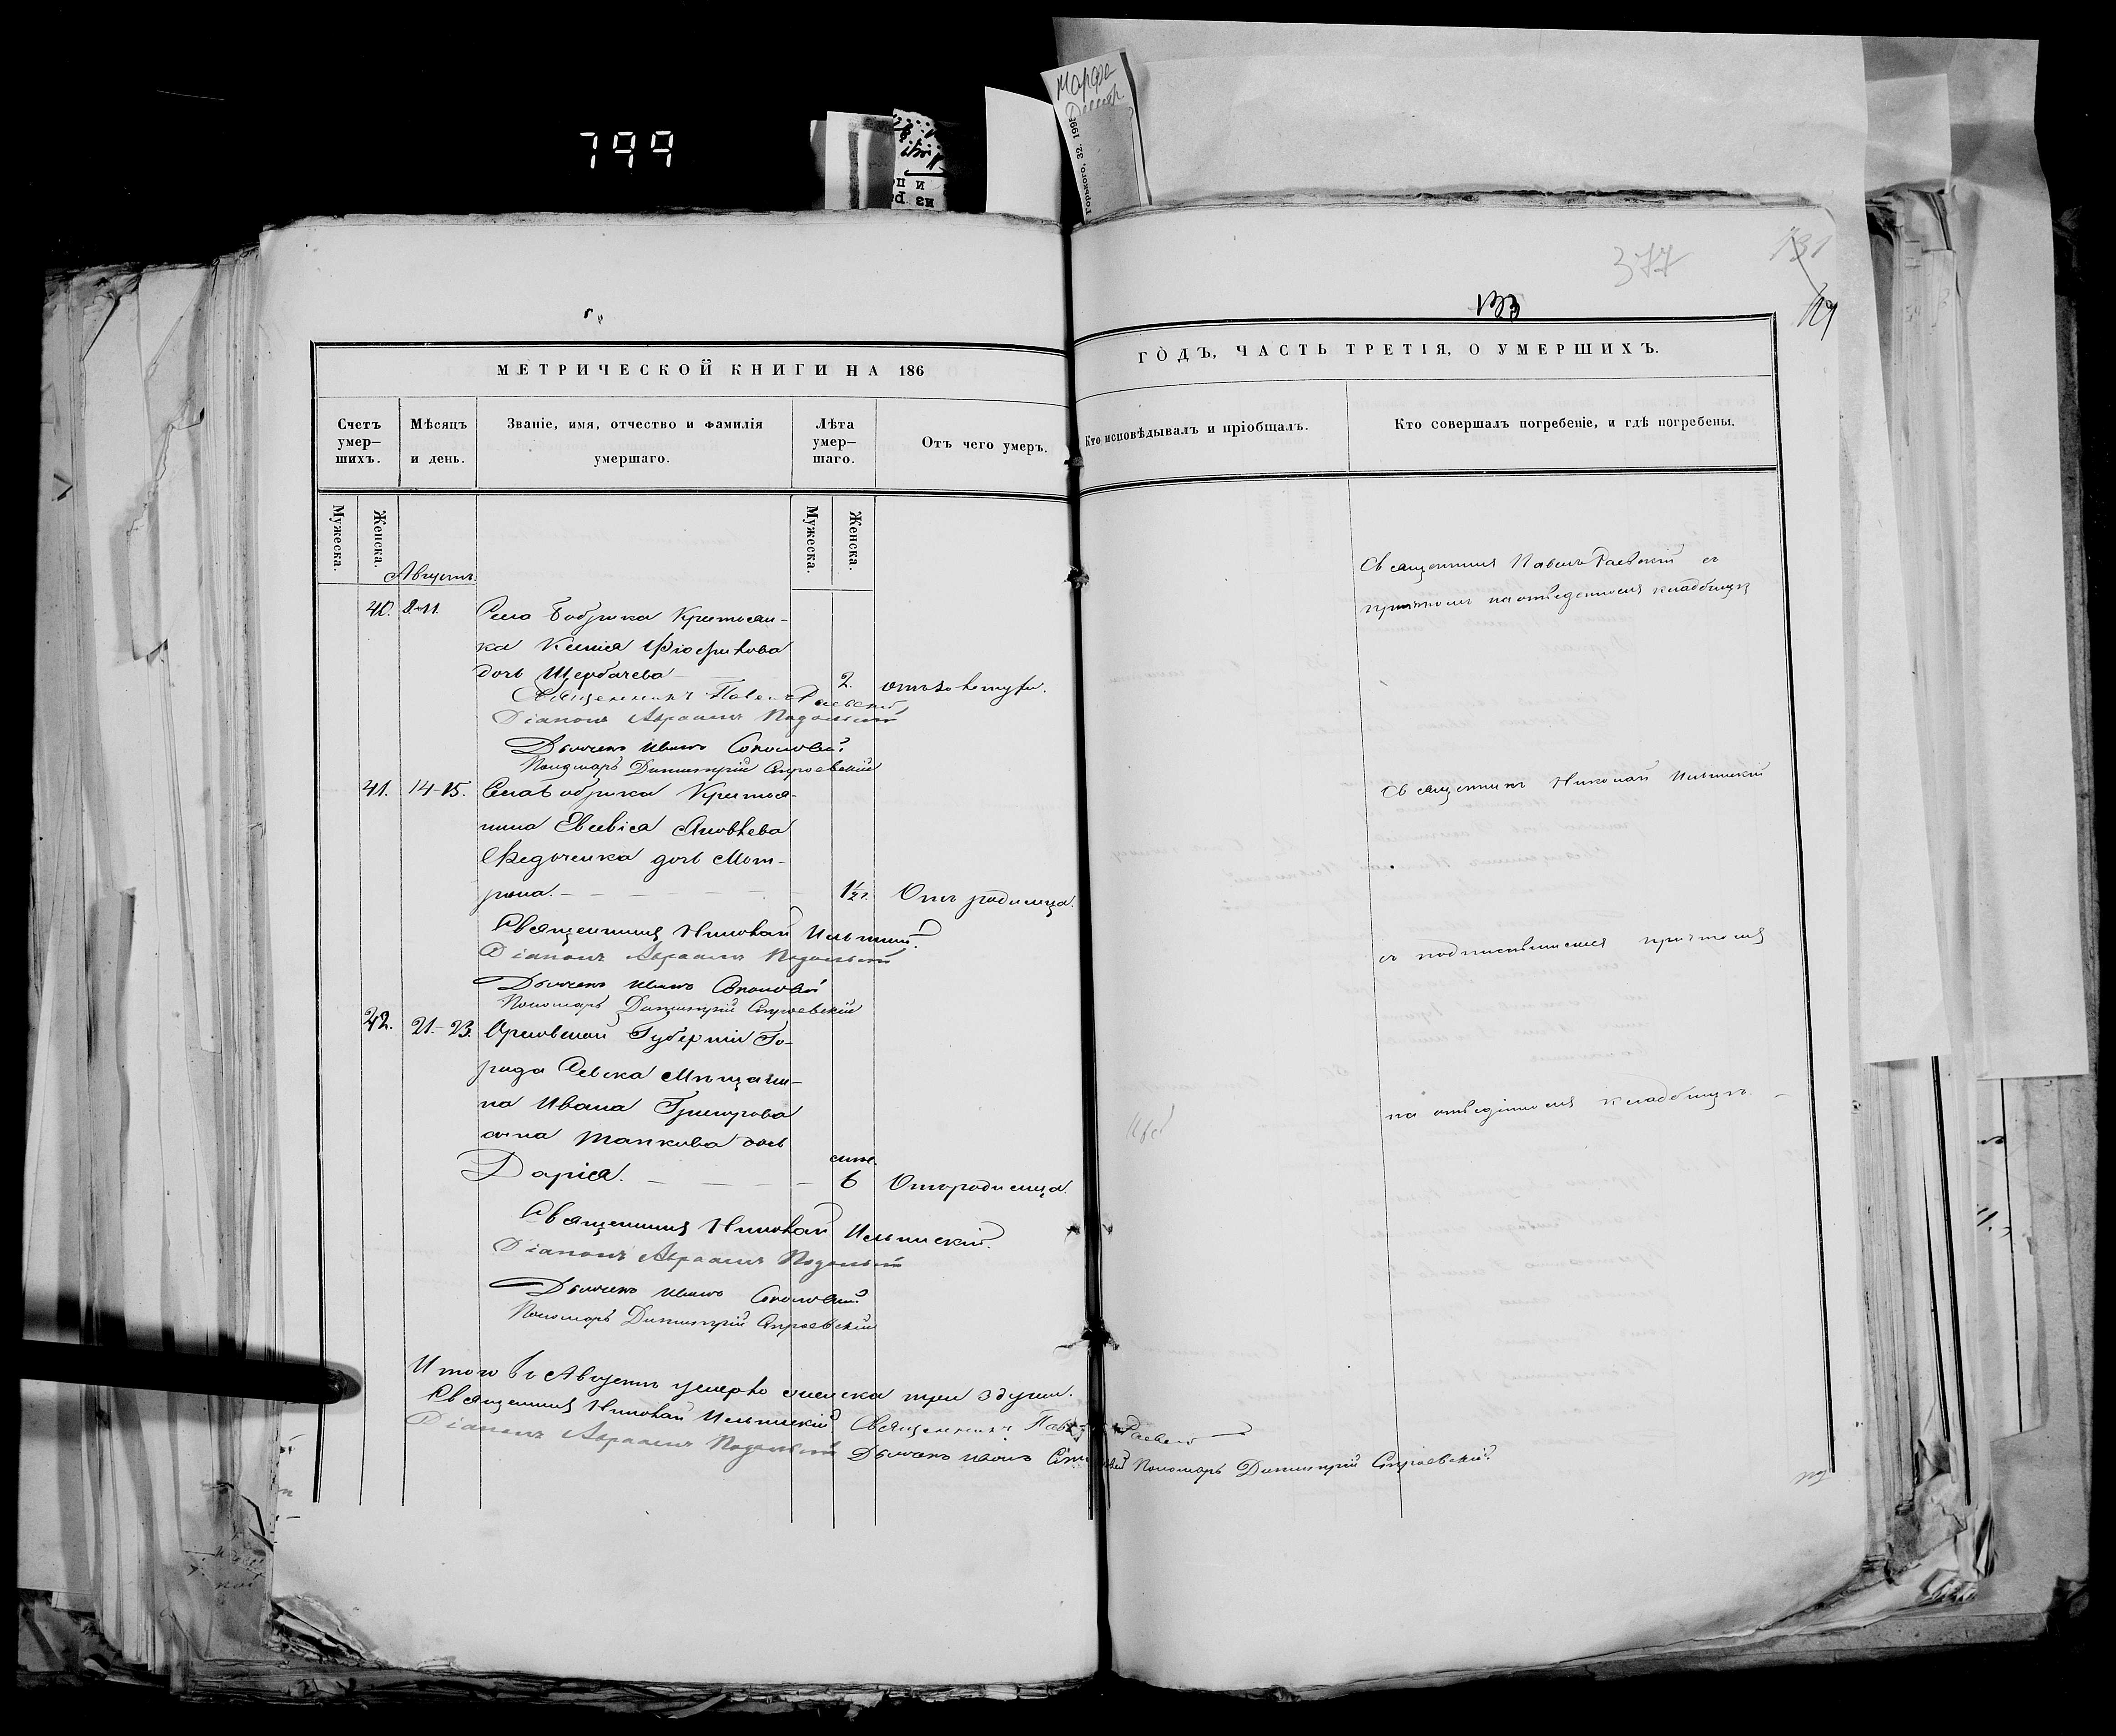 799
Марфа
Горького, 32. 199
377
131
133
МЕТРИЧЕСКОЙ КНИГИ НА 186
ГОДЪ, ЧАСТЬ ТРЕТІЯ, О УМЕРШИХЪ.
Счетъ умер-шихъ.
Мѣсяцъ и день.
Званіе, имя, отчество и фамилія умершаго.
Лѣта умер-шаго.
Отъ чего умеръ.
Кто исповѣдывалъ и пріобщалъ.
Кто совершалъ погребеніе, и гдѣ погребены.
Мужеска.
Женска.
Мужеска.
Женска.
Августъ.
Священникъ Павелъ Раевскій съ
причтомъ на отведенномъ кладбищѣ
40. 9-11. Села Бобрика Крестьян-
ка Ксенія
дочь Щербачева 2.
Священникъ Павелъ Раевскій
Діаконъ Авраамъ Подольскій
Дьячекъ Иванъ Соколовскій
Пономарь Димитрій Строевскій
41. 14-15. Села Бобрика Крестья-
нина Евсевія Яковлева
Федоченка дочь Мот-
рона. 1½ г. Отъ родимца.
Священникъ Николай Ильинскій
Діаконъ Авраамъ Подольскій
Дьячекъ Иванъ Соколовскій
Пономарь Димитрій Строевскій
Священникъ Николай Ильинскій
съ подписавшимся причтомъ
на отведенномъ кладбищѣ.
42. 21-23. Орловской Губерніи Го-
рода Севска Мѣщани-
на Ивана Григорова
сына Тапкова дочь
Дарія. 6 Отъ родимца.
Священникъ Николай Ильинскій.
Діаконъ Авраамъ Подольскій
Дьячекъ Иванъ Соколовскій
Пономарь Димитрій Строевскій
Итого въ Августѣ умерло женска три 3 души.
Священникъ Николай Ильинскій Священникъ Павелъ Раевскій
Діаконъ Авраамъ Подольскій Дьячекъ Иванъ Соколовскій Пономарь Димитрій Строевскій